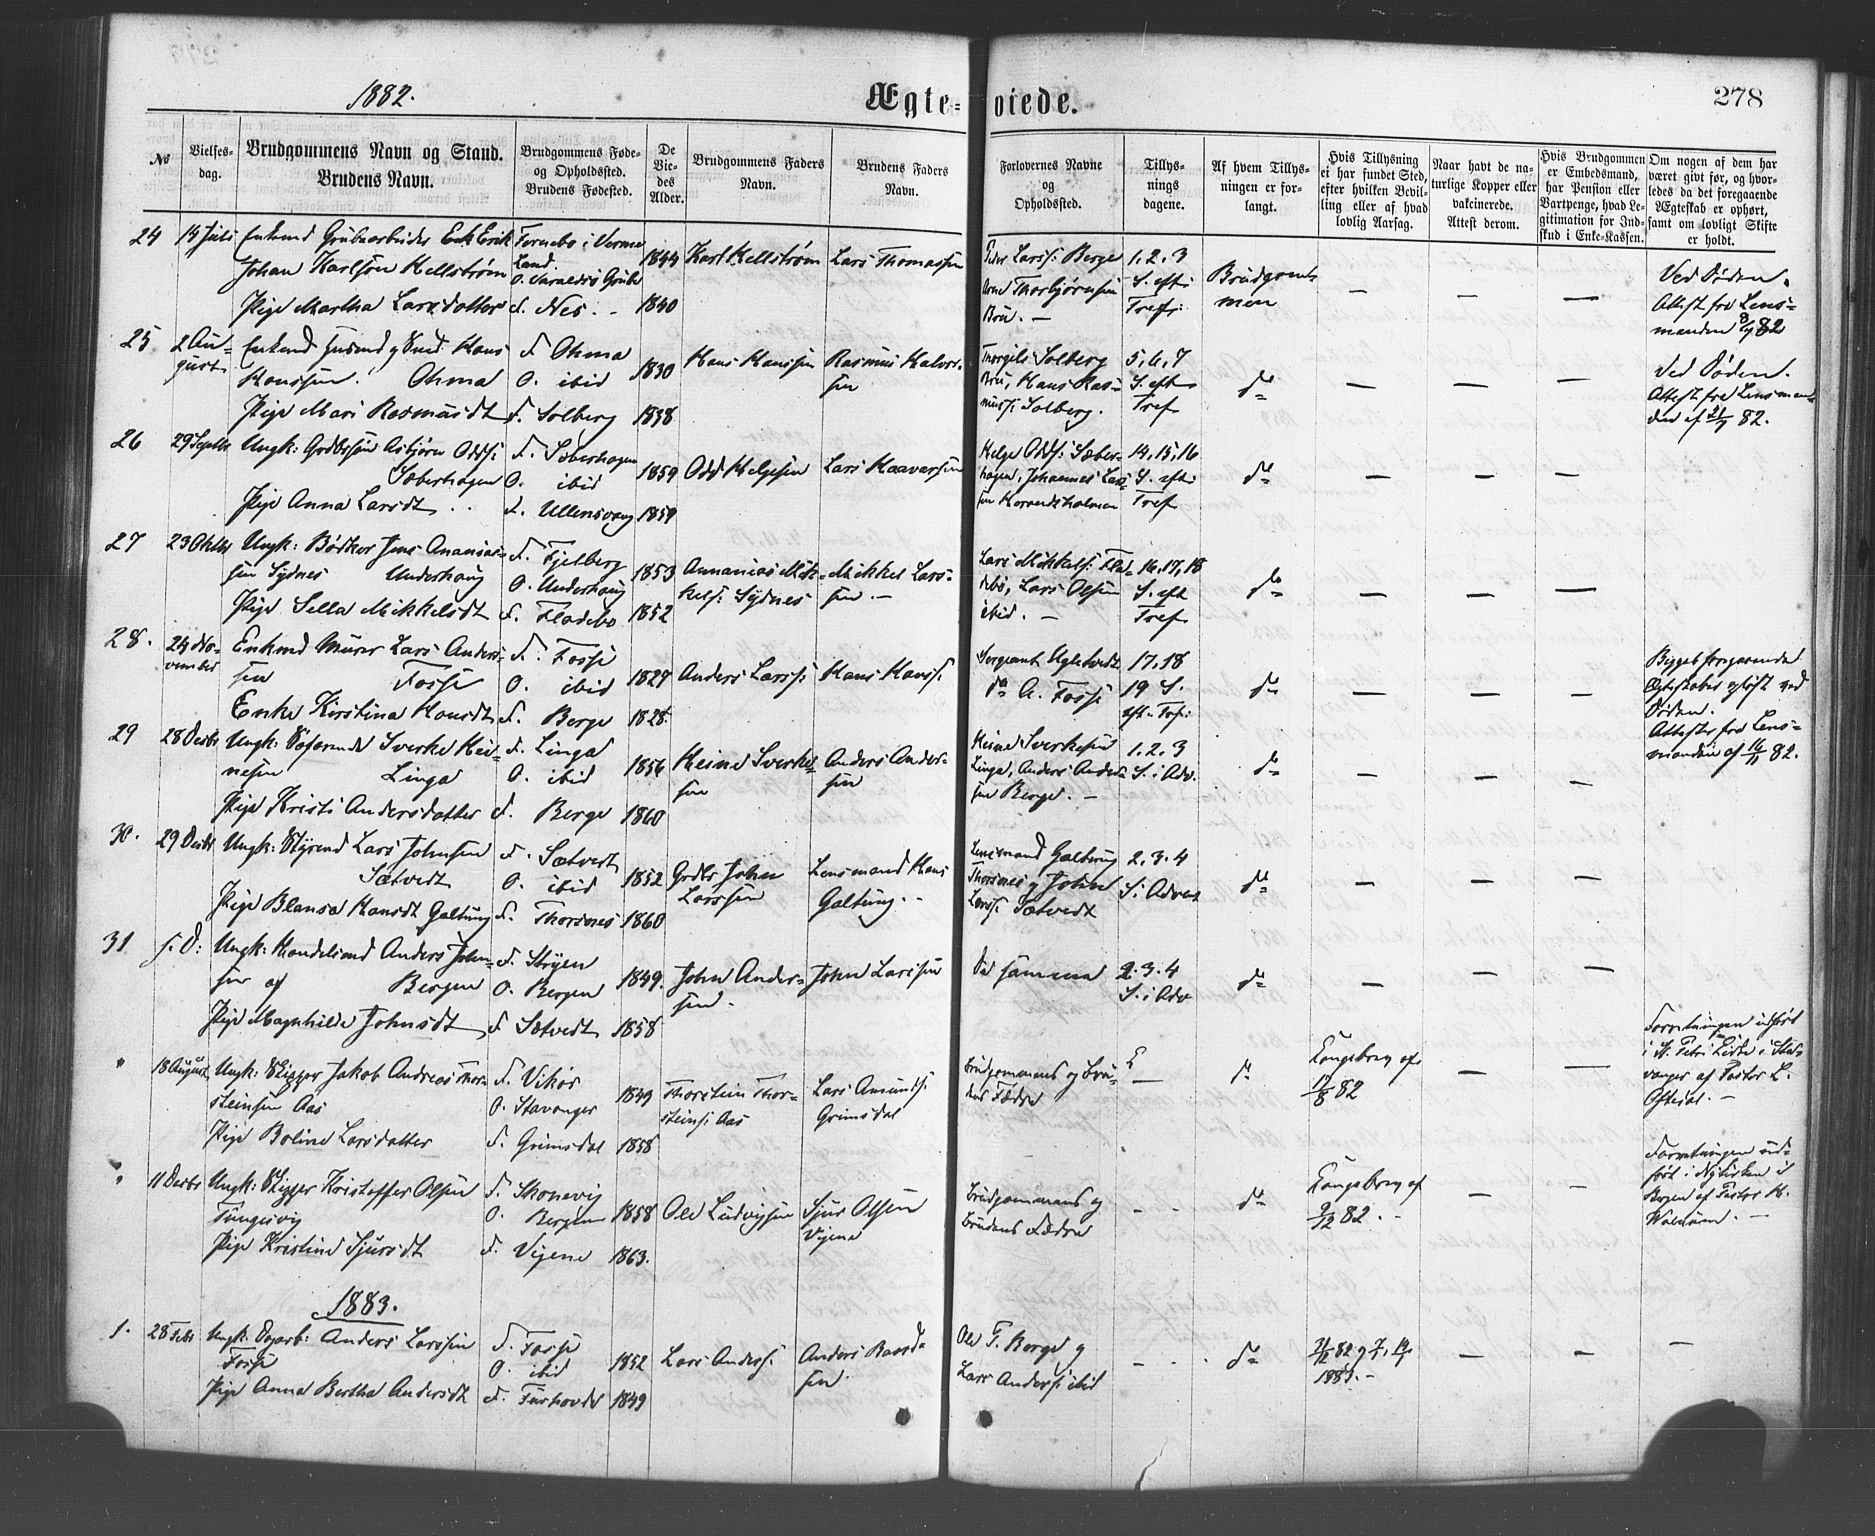 1882.
Ægte=
viede.
278
No
Vielses=
dag.
Brudgommens Navn og Stand.
Brudens Navn.
Brudgommens Føde=
og Opholdssted.
Brudens Fødested.
De
Vie=
des
Alder.
Brudgommens Faders
Navn.
Brudens Faders
Navn.
Forlovernes Navne
og
Opholdssted.
Tillys=
nings
dagene.
Af hvem Tillys=
ningen er for=
langt.
Hvis Tillysning
ei har fundet Sted,
efter hvilken Bevil=
ling eller af hvad
lovlig Aarsag.
Naar havt de na=
turlige Kopper eller
vakcinerede.
Attest derom.
Hvis Brudgommen
er Embedsmand,
har Pension eller
Vartpenge, hvad Le=
gitimation for Ind=
skud i Enke=Kassen.
Om nogen af dem har
været givt før, og hvor=
ledes da det foregaaende
Ægteskab er ophørt,
samt om lovligt Skifte
er holdt.
24
14 Juli
Enkmd Grubearbeider Erik
Johan Karlsen Kellstrøm
Pige Martha Larsdatter
Fernebo i Verm=
land
O. Varaldsø Grube
F. Nes. -
1844
1840
Karl Kellstrøm
Lars Thomassen
Peder Larss: Berge
Arne Thorbjørnsen
Bru. -
1. 2. 3
S. eft:
Tref:
Brudgom=
men
Ved Døden.
Attest fra Lens=
manden 8/7 82
25
2 Au=
gust
Enkmd Husmd g Smed Hans
Hanssen. Ohma
Pige Mari Rasmusdt
F. Ohma
O. ibid
F. Solberg
1830
1838
Hans Hanssen
Rasmus Halvor=
sen
Thorgils Solberg
Bru, Hans Ras=
muss: Solberg.
5, 6, 7
S. eft
Tref
do
Ved Døden.
Attest fra Lensman=
den af 21/7 82.
26
29 Septbr
Ungk: Grdbrsøn Asbjørn Odds:
Sæberhagen
Pige Anna Larsdt
F. Sæberhagen
O. ibid
F. Ullensvang
1859
1859
Odd Helgesen
Lars Haavarsen
Helge Odds: Sæber=
hagen, Johannes Lars=
sen
14, 15, 16
S. eft:
Tref
do
27
23 Oktbr
Ungk: Bødker Jens Ananias=
sen Sydnes Underhaug
Pige Sella Mikkelsdt
F. Fjelberg
O. Underhaug
F. Fladebo
1853
1852
Annanias Mik=
kels: Sydnes
Mikkel Lars=
sen. -
Lars Mikkels: Fla=
debø, Lars Olsen
ibid. -
16, 17, 18
S. eft
Tref
do
28.
24 No=
vember
Enkmd Murer Lars Anders=
sen Fosse
Enke Kirstina Hansdt
F. Fosse
O. ibid
F. Berge
1827
1828
Anders Larss:
Hans Hanss:
Sergeant Ugletvedt
do A. Fosse
17, 18
19 S.
eft. Tref:
do
Begges foregaaende
Ægteskaber opløst ved
Døden.
Attester fra Lens=
manden af 16/11 82.
29
28 Decbr
Ungk: Søfarende Sverke Hei=
nesen Linga
Pige Kristi Andersdatter
F. Linga
O. ibid
F. Berge
1856
1860
Heine Sverke=
sen
Anders Anders=
sen
Heine Sverkesen
Linga, Anders Anders=
sen Berge. -
1. 2. 3
S. i Adv.
do
30.
29 Decbr
Ungk: Styrmd Lars Johnsen
Sætvedt
Pige Blansa Hansdt Galtung
F. Sætvedt
O. ibid
F. Thorsnes
1852
1860
Grdbr John
Larssen
Lensmand Hans
Galtung. -
Lensmand Galtung
Thorsnes g John
Larss: Sætvedt
2. 3. 4
S. i Advent
do
31
s. D:
Ungk: Handelsmd Anders John=
sen af Bergen
Pige Magnhilde Johnsdt
F. Strøen
O. Bergen
F. Sætvedt
1849.
1858
John Anders=
sen.
John Larssen
De samme
2. 3. 4
S. i Adv
do
"
18 August
Ungk: Skipper Jakob Andreas Thor=
steinsen Aas
Pige Boline Larsdatter
F. Vikør
O. Stavanger
F. Grimsdal
1849
1858
Thorstein Thor=
steins: Aas
Lars Amunds:
Grimsdal
Brudgommens og Bru=
dens Fædre
do
Kongebrev af
17/8 82
Forretningen udført
i St. Petri Kirke i Sta=
vanger af Pastor L.
Oftedal. -
"
11 Decbr
Ungk: Skipper Kristoffer Olsen
Tungesvig
Pige Kristine Sjursdt
F. Skonevig
O. Bergen
F. Vigene
1858
1863.
Ole Ludvigsen
Sjur Olsen
Vigene
Brudgommens og
Brudens Fædre
do
Kongebrev af
9/12 82. -
Forretningen ud=
ført i Nykirken i
Bergen af Pastor H.
Walnum. -
1883.
1.
28 Febr
Ungk: Dagarb: Anders Larssen
Fosse
Pige Anna Bertha Andersdt
F. Fosse
O. ibid
F. Furhovde
1852
1849
Lars Anders:
Anders Baards=
sen
Ole T. Berge g
Lars Anders: ibid
do
31/12 82 g 7/1, 14/1
1883. -